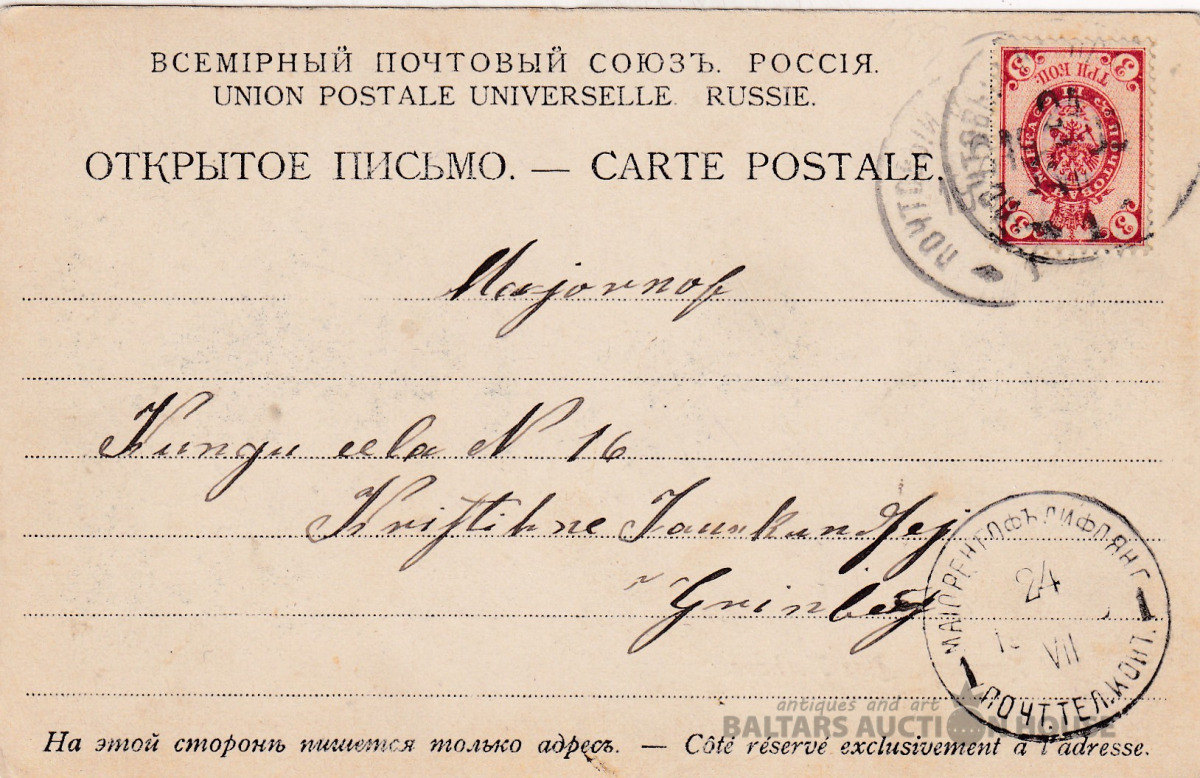 ВСЕМІРНЫЙ ПОЧТОВЫЙ СОЮЗЪ. РОССІЯ.
UNION POSTALE UNIVERSELLE. RUSSIE.
ОТКРЫТОЕ ПИСЬМО. — CARTE POSTALE.
3 ТРИ КОП. 3
3 3
ПОЧТОВЫЙ
Majornof
Kungu eela N 16
Kristihne Jaunkundsej
Grinberg
МАІОРЕНГОФЪ ЛИФЛЯНД.
24
VII
1 1
ПОЧТ.ТЕЛ.КОНТ.
antiques and art
BALTARS AUCTION HOUSE
На этой сторонѣ пишется только адресъ. — Côté réservé exclusivement à l'adresse.